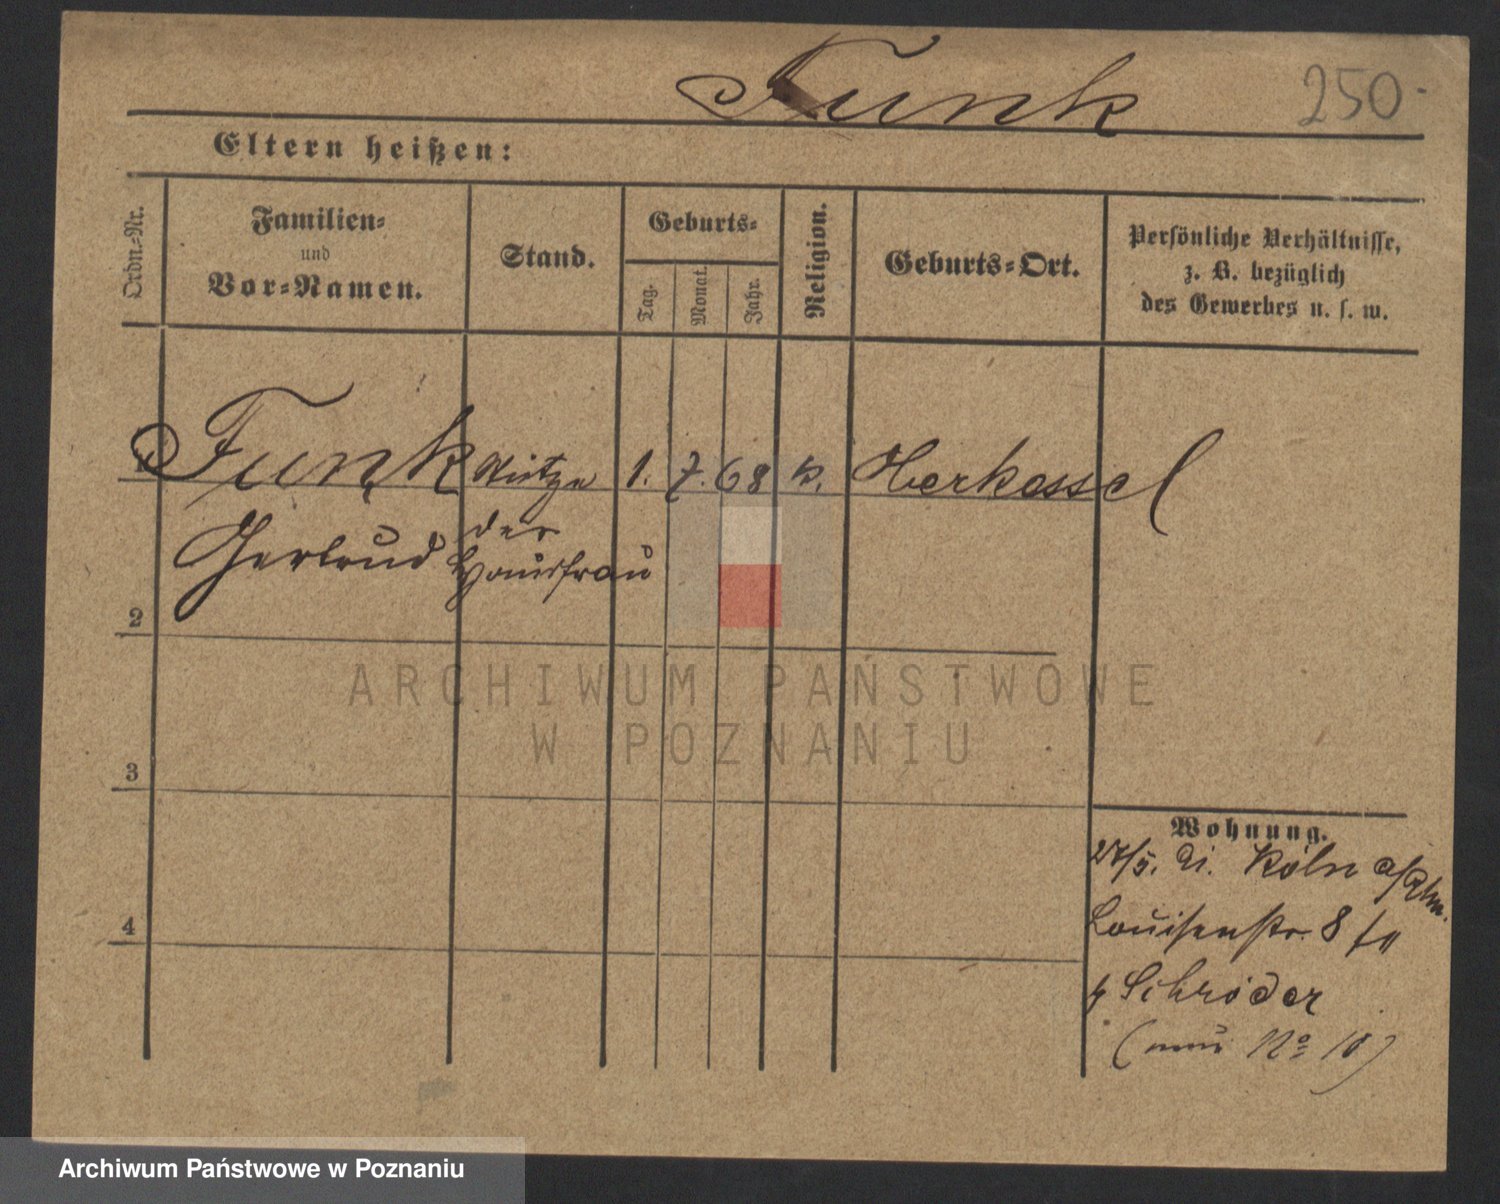 Funk
250.
Eltern heißen:
Ordn.-Nr.
Familien-
und
Vor-Namen.
Stand.
Geburts-
Tag.
Monat.
Jahr.
Religion.
Geburts-Ort.
Persönliche Verhältnisse,
z. B. bezüglich
des Gewerbes u. s. w.
1 Funk Stütze 1. 7. 68 k. Herkessel
Gertrud der
Hausfrau
2
3
4
Wohnung.
27/5. Köln a/Rhn.
Louisenstr. 8
Schröder
(neu No 10)
ARCHIWUM PAŃSTWOWE
W POZNANIU
Archiwum Państwowe w Poznaniu